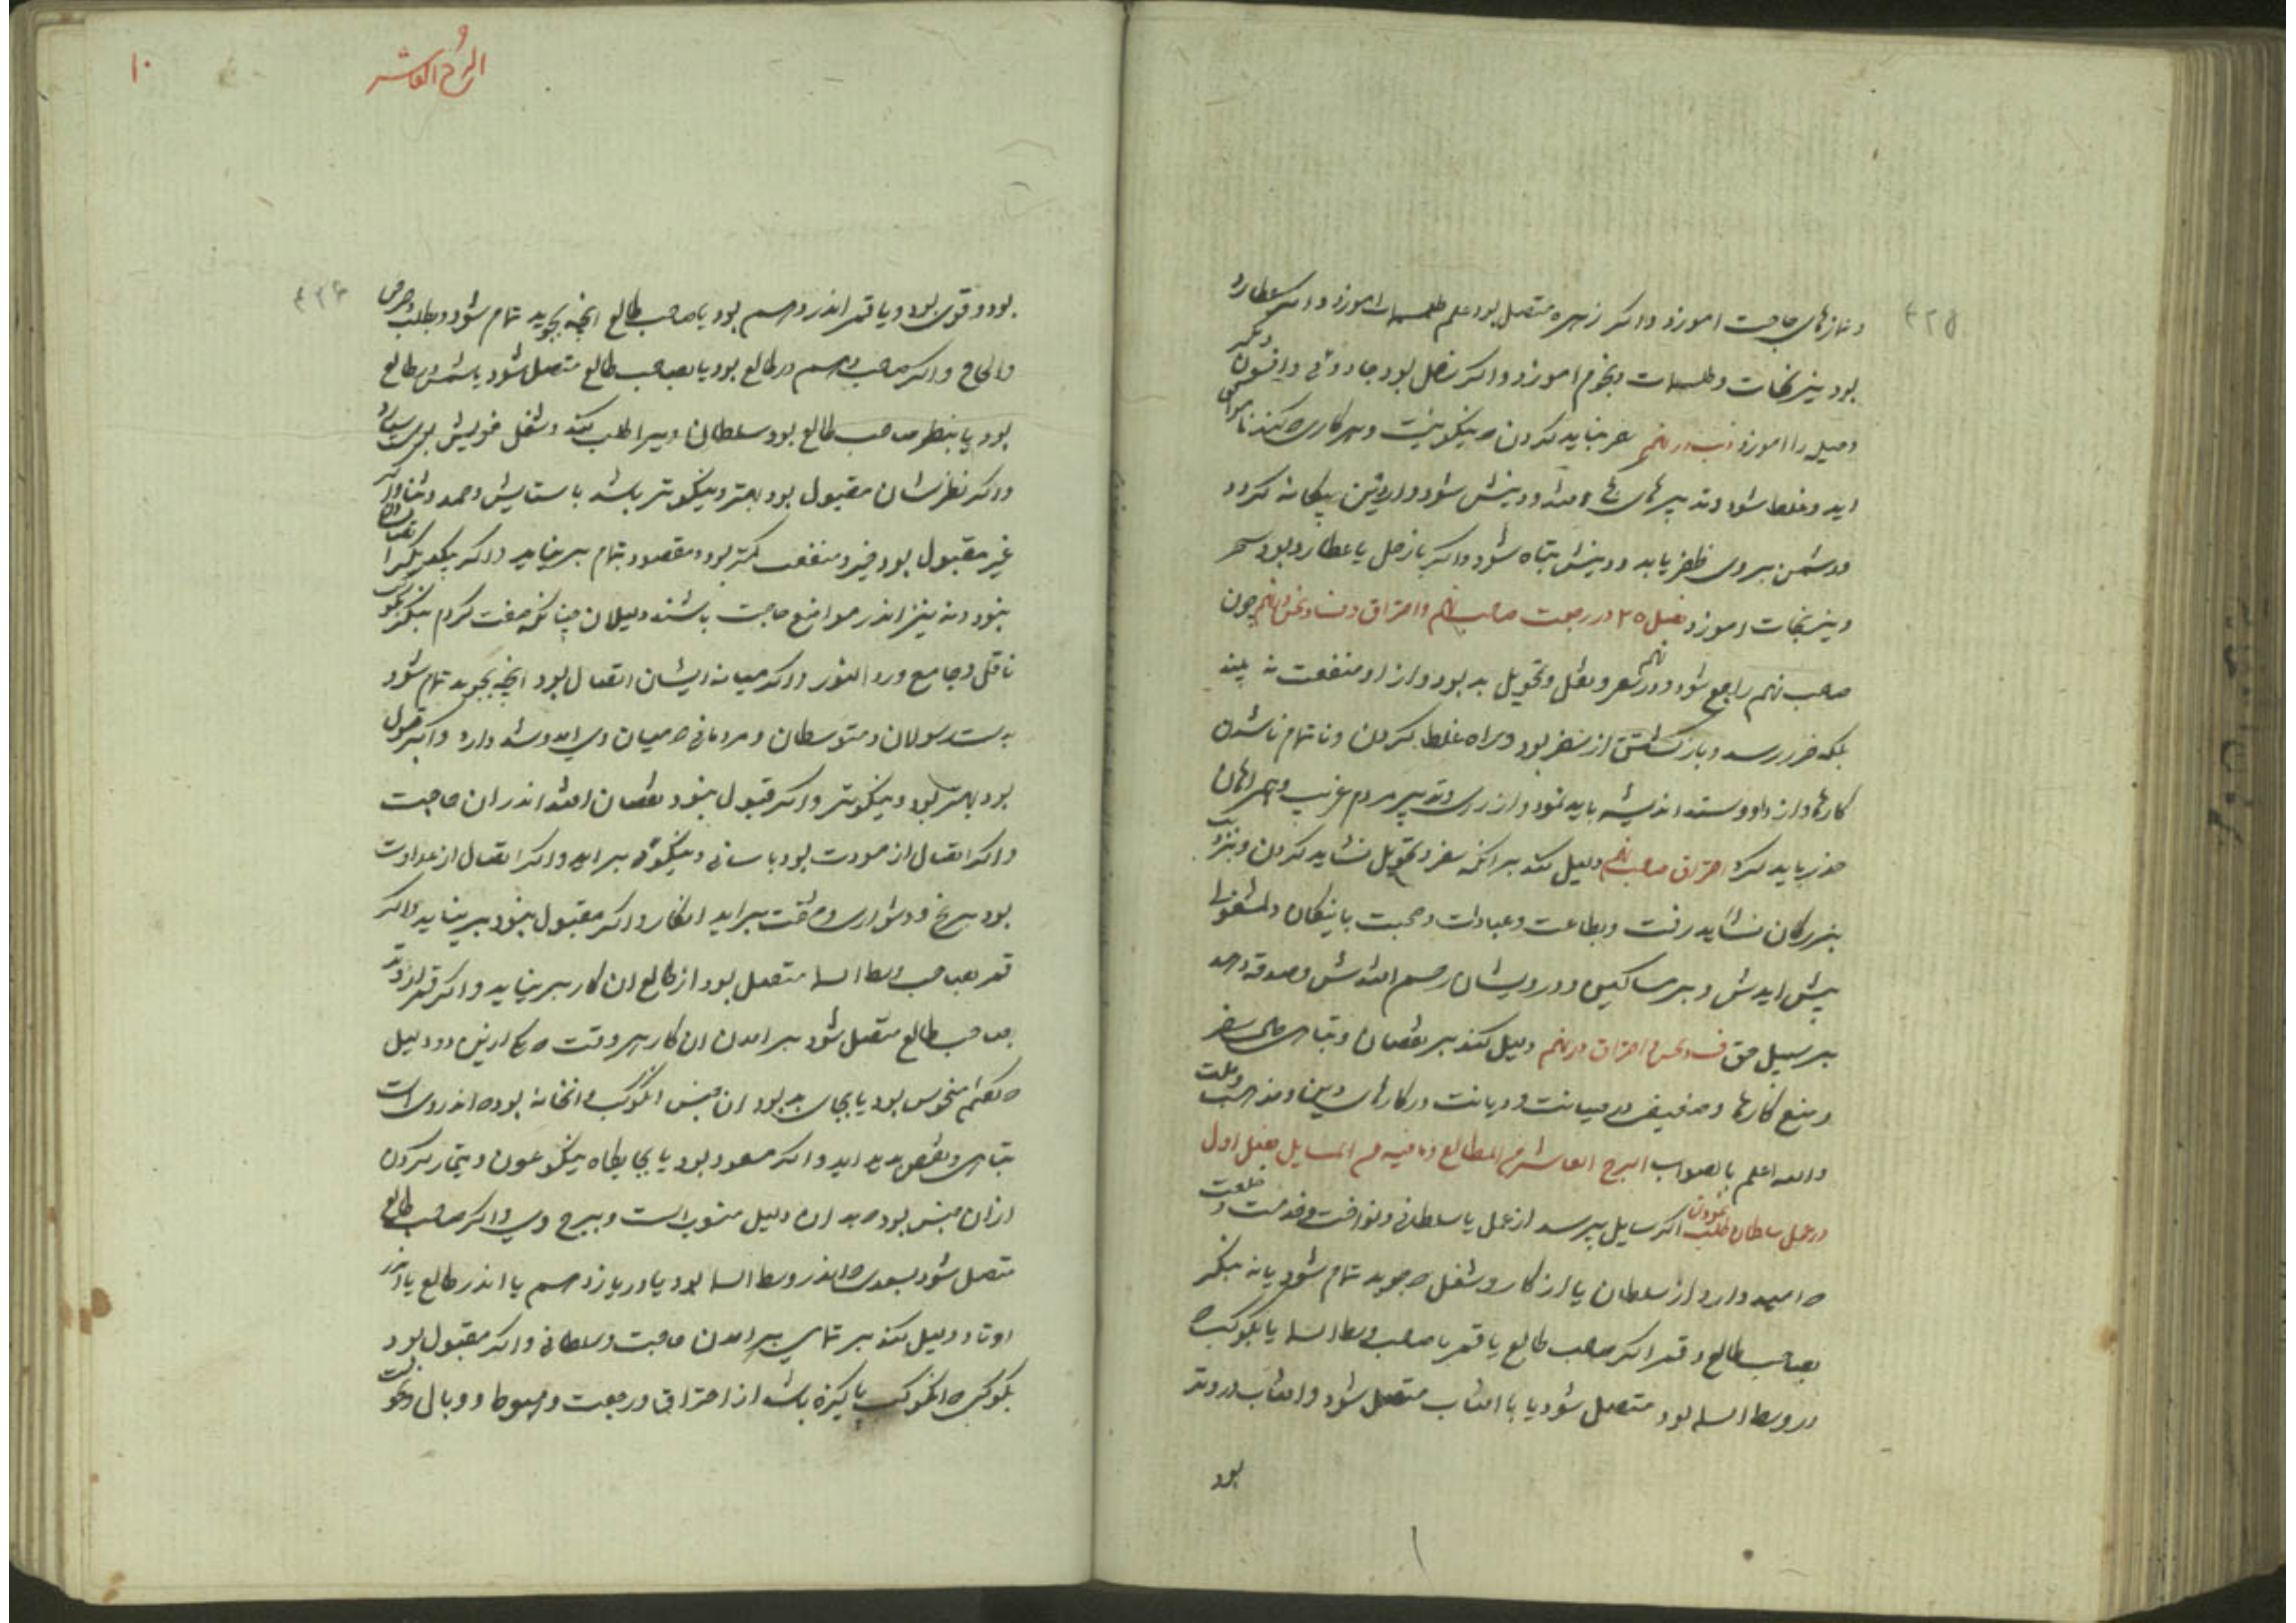 و نمازهای حاجت اموزد واکر زهره متصل بود علم طلسمات اموزد واکر عطارد
بود نیرنجات و طلسمات و نجوم اموزد واکر زحل بود جادوئی و افسون و مکر
و حیله را اموزد ذنب در نهم سفر نباید کردن که نیکو نیست و هر کاری که کند ناموافق
اید و غلط شود و تدبیرهای افتد و دینش شود و از دین بیکانه کردد
و دشمن بر وی ظفر یابد و دینش تباه شود واکر با زحل یا عطارد بود سحر
و نیرنجات اموزد فصل ۲۵ در رجعت صاحب نهم و احتراق و فساد و نحس در نهم چون
صاحب نهم راجع شود در نهم سفر و نقل و تحویل بد بود و از او منفعت نه بیند
بلکه ضرر رسد و باز کشتن از سفر بود و راه غلط کردن و ناتمام ناشدن
کارها و از داد و ستد اندیشه باید نمود و از رای و تدبیر مردم غریب و همراهان
حذر باید کرد احتراق صاحب نهم دلیل کند بر انکه سفر و تحویل نشاید کردن و بنزدیک
بزرکان نشاید رفت و بطاعت و عبادات و صحبت با نیکان و مشغولی
پیش ایدش و بر مساکین و درویشان رحم افتدش و صدقه دهد
بر سبیل حق فساد و نحس و احتراق در نهم دلیل کند بر نقصان و تباهی حال سفر
و منع کارها و ضعیفی در صیانت و دیانت در کارهای دین و مذهب و ملت
والله اعلم بالصواب البرج العاشر من الطالع و ما فیه من المسایل فصل اول
در عمل سلطان طلب نمودن اکر سایل بپرسد از عمل یا سلطانی و نواخت و خدمت و خلعت
که امید دارد از سلطان یا از کار و شغل که جوید تمام شود یا نه بنکر
بصاحب طالع و قمر اکر صاحب طالع یا قمر با صاحب وسط السما یا بکوکبی که
در وسط السما بود متصل شود یا با افتاب متصل شود و افتاب در وتد
بود
۴۲۵
البرج العاشر
۱۰
۴۲۶
بود و قوی بود و یا قمر اندر دهم بود با صاحب طالع انچه بجوید تمام شود و بطلب و حرص
والحاح واکر صاحب دهم در طالع بود یا بصاحب طالع متصل شود یا شمس در طالع
بود یا بنظر صاحب طالع بود سلطان ویرا طلب کند و شغل خویش بوی سپارد
واکر نظرشان مقبول بود بهتر و نیکوتر باشد با ستایش و حمد و ثنا و اکر
غیر مقبول بود خیر و منفعت کمتر بود و مقصود بتمام بر نیاید واکر بیکدیکر اتصال شان
نبود و نه نیز اندر مواضع حاجت باشند دلیلان چنانکه صفت کردم بنکر بکوکب
ناقل و جامع و رد النور واکر میانه ایشان اتصال بود انچه بجوید تمام شود
بدست رسولان و متوسطان و مردمانی که میان وی امد و شد دارد واکر قبول
بود بهتر بود و نیکوتر واکر قبول نبود نقصان افتد اندران حاجت
واکر اتصال از مودت بود باسانی و نیکوئی براید واکر اتصال از عداوت
بود برنج و دشواری و مشقت براید ان کار واکر مقبول نبود بر نیاید واکر
قمر بصاحب وسط السما متصل بود از طالع ان کار بر نیاید واکر قمر از وتد
بصاحب طالع متصل شود برامدن ان کار بر وقت که یکی ازین دو دلیل
که کفتم منحوس بود یا بجای بد بود ان جنس انکوکب و انخانه بود که اندر وی است
تباهی و نقص پدید اید واکر مسعود بود یا بجایکاه نیکو عون و تیمار کردن
از ان جنس بود که بدان دلیل منسوب است و ببرج وی واکر صاحب طالع
متصل شود بسعدی که اندر وسط السما بود یا در یازدهم یا اندر طالع یا اندر
اوتاد دلیل کند بر تمامی برامدن حاجت و سلطانی واکر مقبول بود
بکوکبی که انکوکب پاکیزه باشد از احتراق و رجعت و هبوط و وبال و نحوست